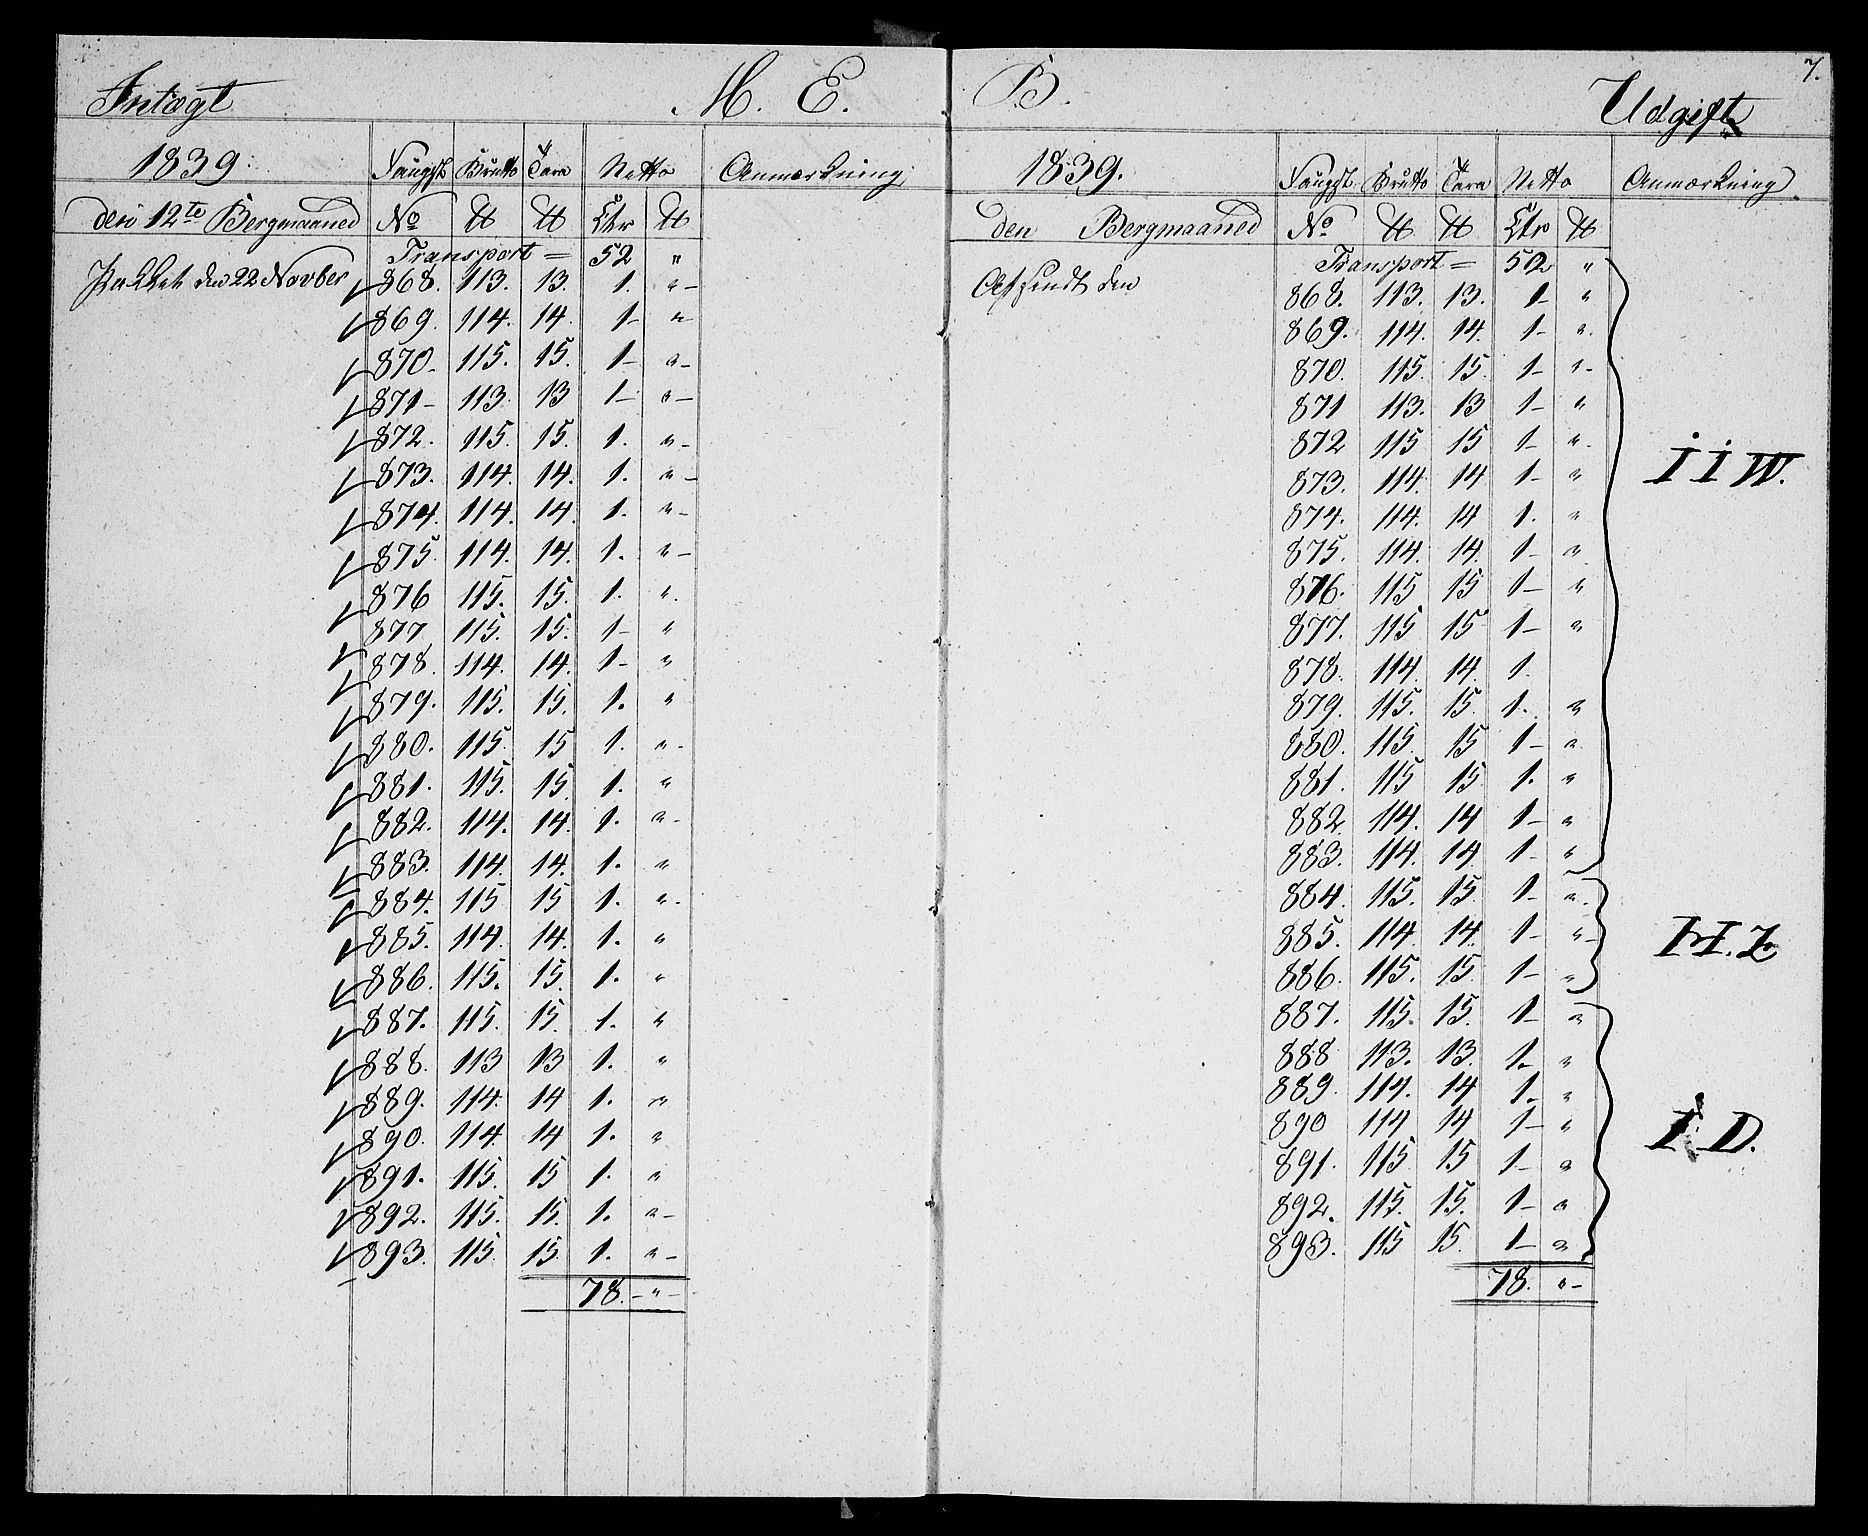 Intægt M. E.
1839. Faugst. Brutto Tara Netto Anmærkning.
den 12te Bergmaaned No ℔ ℔ Ctr ℔
Transport = 52 "
Pakket den 22 Novber 868. 113. 13. 1. "-
869. 114. 14. 1- "-
870- 115. 15. 1- "-
871- 113. 13 1- "-
872. 115. 15. 1. "-
873. 114. 14. 1. "-
874. 114. 14. 1. "-
875. 114. 14. 1. "-
876 115. 15. 1. ".
877 115. 15. 1- "
878. 114. 14. 1- "
879. 115. 15. 1. "
880. 115. 15 1. "-
881. 115. 15. 1. "
882. 114. 14. 1. "-
883. 114. 14. 1. "
884. 115 15 1. "-
885. 114. 14. 1. "
886. 115. 15. 1. "
887. 115. 15. 1. "
888. 113 13 1. "
889. 114. 14 1. "
890. 114. 14 1. "
891. 115. 15 1. "
892. 115. 15. 1. "-
893. 115 15. 1. "-
78.-"-
B. Udgift 7.
1839. Faugst. Brutto Tara Netto Anmærkning.
den Bergmaaned No ℔ ℔ Ctr ℔
Transport = 52 "
Afsendt den 868. 113. 13. 1- "
869. 114. 14. 1- ".
870. 115. 15. 1- "-
871 113. 13 1- "
872 115 15 1- ".
i i W.
873. 114. 14 1- "
874. 114. 14 1. "
875. 114. 14. 1- "
876. 115 15 1- "
877. 115 15 1- "
878. 114. 14. 1.
879. 115. 15 1. "
880. 115. 15 1- "
881. 115 15 1. "
882. 114. 14 1- "
883. 114. 14. 1- "
884. 115. 15. 1- ".
885. 114. 14. 1- "-
H. Z
886. 115. 15. 1- "
887. 115. 15. 1- "
888 113. 13. 1. "
889. 114. 14 1. "
890 114 14 1- "
I. D.
891. 115 15 1- "
892. 115. 15. 1- "
893. 115 15. 1- "
78. "-